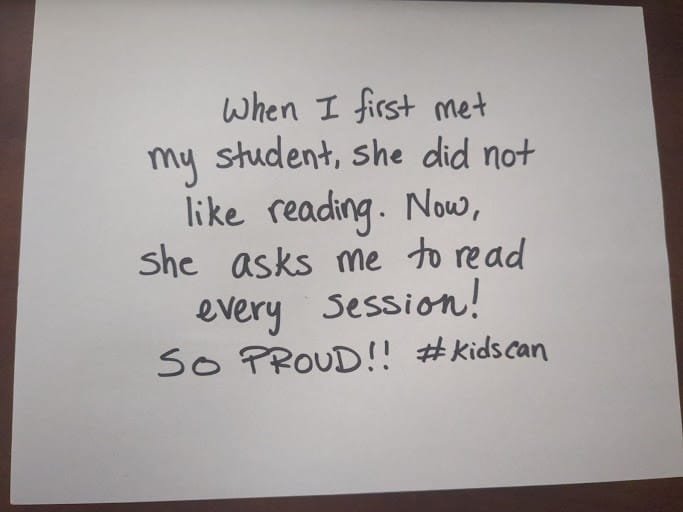 When I first met
my student, she did not
like reading. Now,
she asks me to read
every session!
SO PROUD!! #kidscan